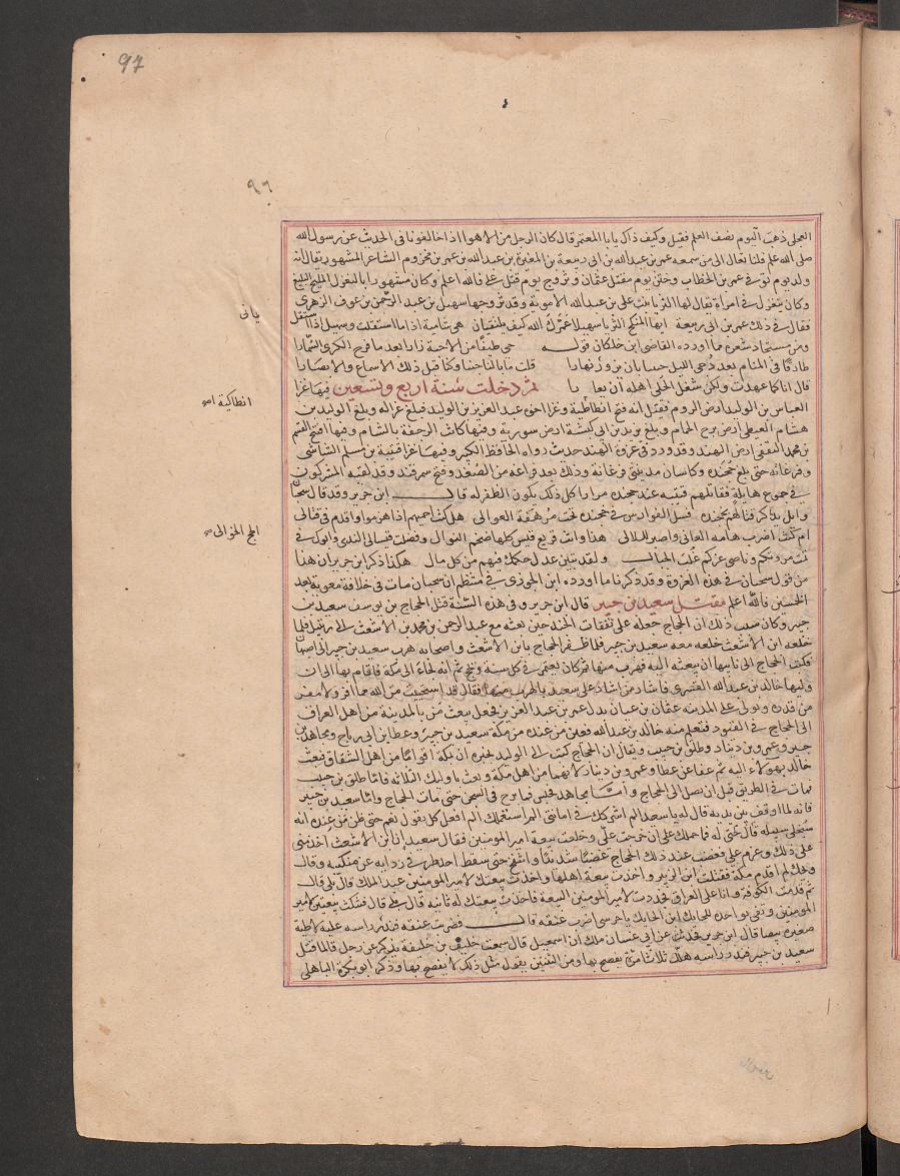 97
٩٦
العجلي ذهب اليوم نصف العلم فقيل وكيف ذاك يابا المعتمر قال كان الرجل من الاهوا اذا خالفونا في الحديث عن رسول الله
صلى الله عليه قلنا تعال الى من سمعه عمر بن عبد الله بن ابي ربيعة بن المغيرة بن عبد الله بن عمر بن مخزوم الشاعر المشهور يقال انه
ولد يوم توفي عمر بن الخطاب وختن يوم مقتل عثمان وتزوج يوم قتل علي فالله اعلم وكان مشهورا بالتغزل المليح البليغ
وكان يتغزل في امراة يقال لها الثريا بنت علي بن عبد الله الاموية وقد تزوجها سهيل بن عبد الرحمن بن عوف الزهري
فقال في ذلك عمر بن ابي ربيعة ايها المنكح الثريا سهيلا عمرك الله كيف يلتقيان هي شامية اذا ما استقلت وسهيل اذا استقل
يماني
ومن مستجاد شعره مما اورده القاضي ابن خلكان قوله حي طيفا من الاحبة زارا بعد ما فرح الكرى السمارا
طارقا في المنام بعد دجى الليل خفيا بان يزور نهارا قلت ما بالنا جفينا وكنا قبل ذلك الاسماع والابصارا
قال انا كما عهدت ولكن شغل الحلي اهله ان يعارا ثم دخلت سنة اربع وتسعين فيها غزا
العباس بن الوليد ارض الروم فقيل انه فتح انطاكية وغزا اخوه عبد العزيز بن الوليد فبلغ غزالة وبلغ الوليد بن
انطاكية
هشام المعيطي ارض برج الحمام وبلغ يزيد بن ابي كبشة ارض سورية وفيها كانت الرجفة بالشام وفيها افتتح القسم
بن محمد الثقفي ارض الهند وقد ورد في غزوة الهند حديث رواه الحافظ الكبير وفيها غزا قتيبة بن مسلم الشاشي
وفرغانه حتى بلغ خجنده وكاسان مدينتي فرغانة وذلك بعد فراغه من الصغد وفتح سمرقند وقد لقيه المشركون
في جموع هايلة فقاتلهم قتيبة عند خجنده مرارا كل ذلك يكون الظفر له قال ابن جرير وقد قال سحبان
وايل يذكر قتالهم بخجنده فسل الفوارس في خجنده تحت مرهفة العوالي هل كنت اجمعهم اذا هزموا واقدم في قتالي
ام كنت اضرب هامة العاتي واصبر للعوالي هذا وانت قريع قيس كلها ضخم النوال وفضلت قيسا في الندى وابوك في
الحجج الخوالي
تمت مروتكم وناصى عزكم غلب الجبال ولقد تبين عدل حكمك فيهم من كل مال هكذا ذكر ابن جرير ان هذا
من قول سحبان في هذه الغزوة وقد ذكرنا ما اورده ابن الجوزي في منتظمه ان سحبان مات في خلافة معوية بعد
الخمسين فالله اعلم مقتل سعيد بن جبير قال ابن جرير وفي هذه السنة قتل الحجاج بن يوسف سعيد بن
جبير وكان سبب ذلك ان الحجاج جعله على نفقات الجند حين بعثه مع عبد الرحمن بن محمد بن الاشعث الى رتبيل فلما
خلعه ابن الاشعث خلعه معه سعيد بن جبير فلما ظفر الحجاج بابن الاشعث واصحابه هرب سعيد بن جبير الى اصبهان
فكتب الحجاج الى نايبها ان يبعثه اليه فهرب منها ثم كان يعتمر في كل سنة ويحج ثم انه لجا الى مكة فاقام بها الى ان
وليها خالد بن عبد الله القسري فاشار من اشار على سعيد بالهرب منها فقال قد استحييت من الله مما افر ولا مفر
من قدره وتولى على المدينة عثمان بن حيان بدل عمر بن عبد العزيز فجعل يبعث من بالمدينة من اهل العراق
الى الحجاج في القيود فتعلم منه خالد بن عبد الله فعين من عنده من مكة سعيد بن جبير وعطا بن ابي رباح ومجاهد بن
جبر وعمرو بن دينار وطلق بن حبيب ويقال ان الحجاج كتب الى الوليد يخبره ان بمكة اقواما من اهل الشقاق فبعث
خالد بهولاء اليه ثم عفا عن عطا وعمرو بن دينار لانهما من اهل مكة وبعث باوليك الثلاثة فاما طلق بن حبيب
فمات في الطريق قبل ان يصل الى الحجاج واما مجاهد فحبس فما برح في السجن حتى مات الحجاج واما سعيد بن جبير
فانه لما اوقف بين يديه قال له يا سعيد الم اشركك في امانتي الم استعملك الم افعل كل يقول نعم حتى ظن من عنده انه
سيخلي سبيله قال حتى له فما حملك على ان خرجت علي وخلعت بيعة امير المومنين فقال سعيد ان ابن الاشعث اخذ مني
على ذلك وعزم علي فغضب عند ذلك الحجاج غضبا شديدا وانتفخ حتى سقط احد طرفي ردايه عن منكبيه وقال
ويحك الم اقدم مكة فقتلت ابن الزبير واخذت بيعة اهلها واخذت بيعتك لامير المومنين عبد الملك قال بلى قال
ثم قدمت الكوفة واليا على العراق فجددت لامير المومنين البيعة فاخذت بيعتك له ثانية قال بلى قال فنكثت بيعتين لامير
المومنين وتفي بواحدة للحايك ابن الحايك يا حرسي اضرب عنقه قال فضربت عنقه فندر راسه عليه لاطية
صغيرة بيضا قال ابن جرير فحدثت عن ابي غسان ملك ان اسمعيل قال سمعت خلف بن خليفة يذكر عن رجل قال لما قتل
سعيد بن جبير فندر راسه هلل ثلاثا مرة يفصح بها وفي الثنتين يقول مثل ذلك لا يفصح بها وذكر ابو بكرة الباهلي